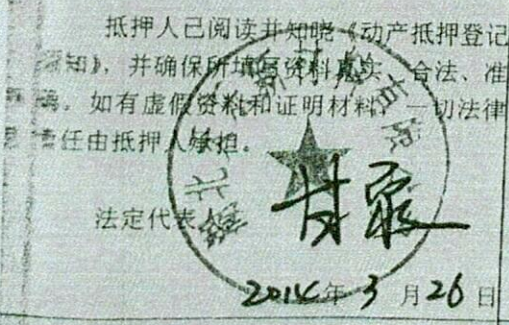 抵押人已阅读并知晓《动产抵押登记
须知》，并确保所填写资料真实、合法、准
确。如有虚假资料和证明材料，一切法律
责任由抵押人承担。
法定代表人
2014年3月26日